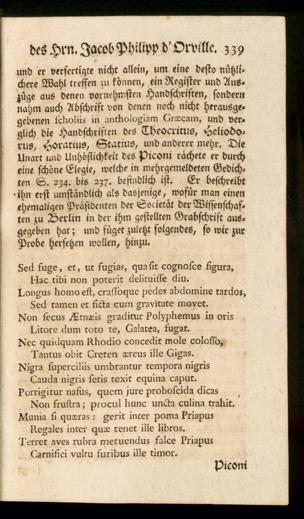 des Hrn. Jacob Philipp d'Orville. 339
und er verfertigte nicht allein, um eine desto nützli-
chere Wahl treffen zu können, ein Register und Aus-
züge aus denen vornehmsten Handschriften, sondern
nahm auch Abschrift von denen noch nicht herausge-
gebenen scholiis in anthologiam Græcam, und ver-
glich die Handschriften des Theocritus, Heliodo-
rus, Horatius, Statius, und anderer mehr. Die
Unart und Unhöflichkeit des Piconi rächete er durch
eine schöne Elegie, welche in mehrgemeldeten Gedich-
ten S. 234. bis 237. befindlich ist. Er beschreibt
ihn erst umständlich als dasjenige, wofür man einen
ehemaligen Präsidenten der Societät der Wissenschaf-
ten zu Berlin in der ihm gestellten Grabschrift aus-
gegeben hat; und füget zuletzt folgendes, so wir zur
Probe hersetzen wollen, hinzu.
Sed fuge, et, ut fugias, quasit cognosce figura,
Hac tibi non poterit delituisse diu.
Longus homo est, crassoque pedes abdomine tardos,
Sed tamen et ficta cum gravitate movet.
Non secus Ætnæis graditur Polyphemus in oris
Litore dum toto te, Galatea, fugat.
Nec quidquam Rhodio concedit mole colosso,
Tantus obit Creten æreus ille Gigas.
Nigra superciliis umbrantur tempora nigris
Cauda nigris setis texit equina caput.
Porrigitur nasus, quem jure proboscida dicas
Non frustra; procul hunc uncta culina trahit.
Munia si quæras: gerit inter poma Priapus
Regales inter quæ tenet ille libros.
Terret aves rubra metuendus falce Priapus
Carnifici vultu furibus ille timor.
Piconi